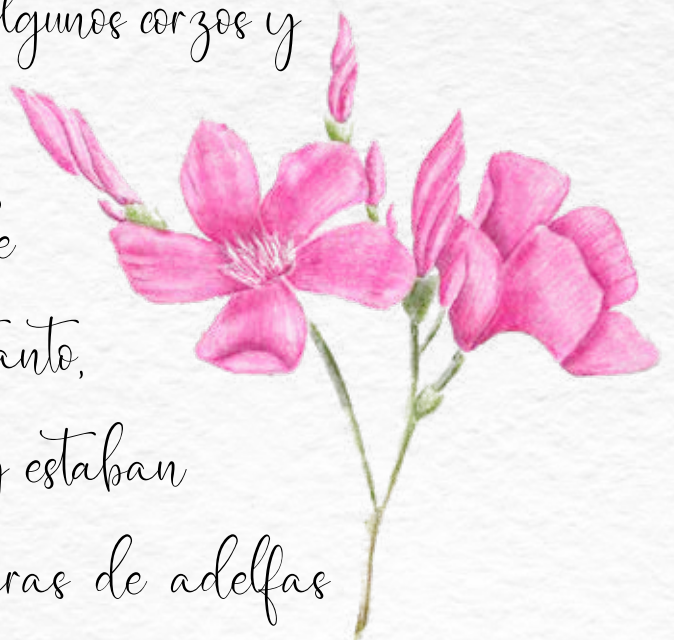 algunos corzos y
e
tanto,
y estaban
ras de adelfas